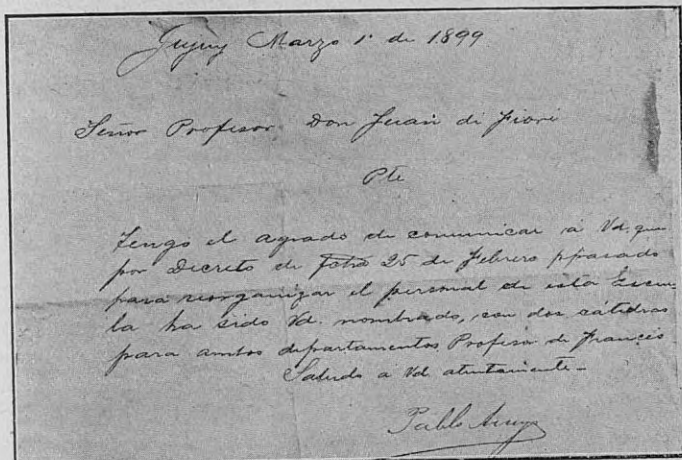 Jujuy Marzo 1º de 1899
Señor Profesor Don Juan di Fiori
Pte
Tengo el agrado de comunicar á Vd. que
por Decreto de fecha 25 de Febrero ppasado
para reorganizar el personal de esta Escue-
la ha sido Vd. nombrado, con dos cátedras
para ambos departamentos Profesor de Francés
Saludo a Vd atentamente-
Pablo